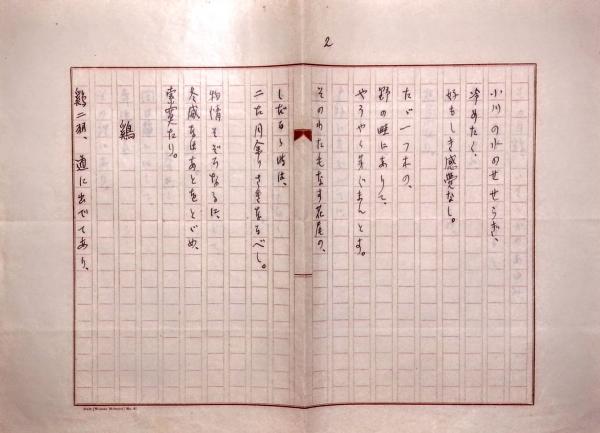 2
小川の水のせせらぎ、
冷めたく、
好もしき感覚なし。
たゞ一つ木の、
野の畦にありて、
やうやく芽ぐまんとす。
そのわたもなす花尾の、
しだるゝ時は、
二た月余りさきなるべし。
物情そぞろなるに、
冬威なほあとをとゞめ、
索寞たり。
鶏
鶏二羽、道に出でてあり、